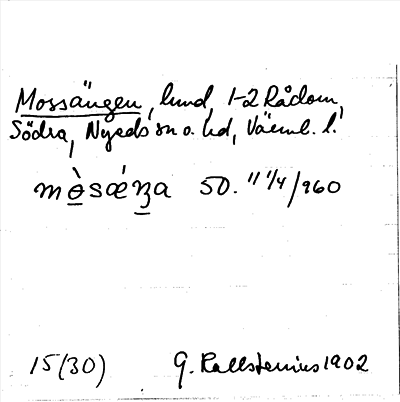 Mossängen, lund, 1-2 Rådom,
Södra, Nyeds sn o. hd, Värml. l.
mò̲sǽŋ̲a 50. 11 1/4/960
15(30) G. Kallstenius 1902